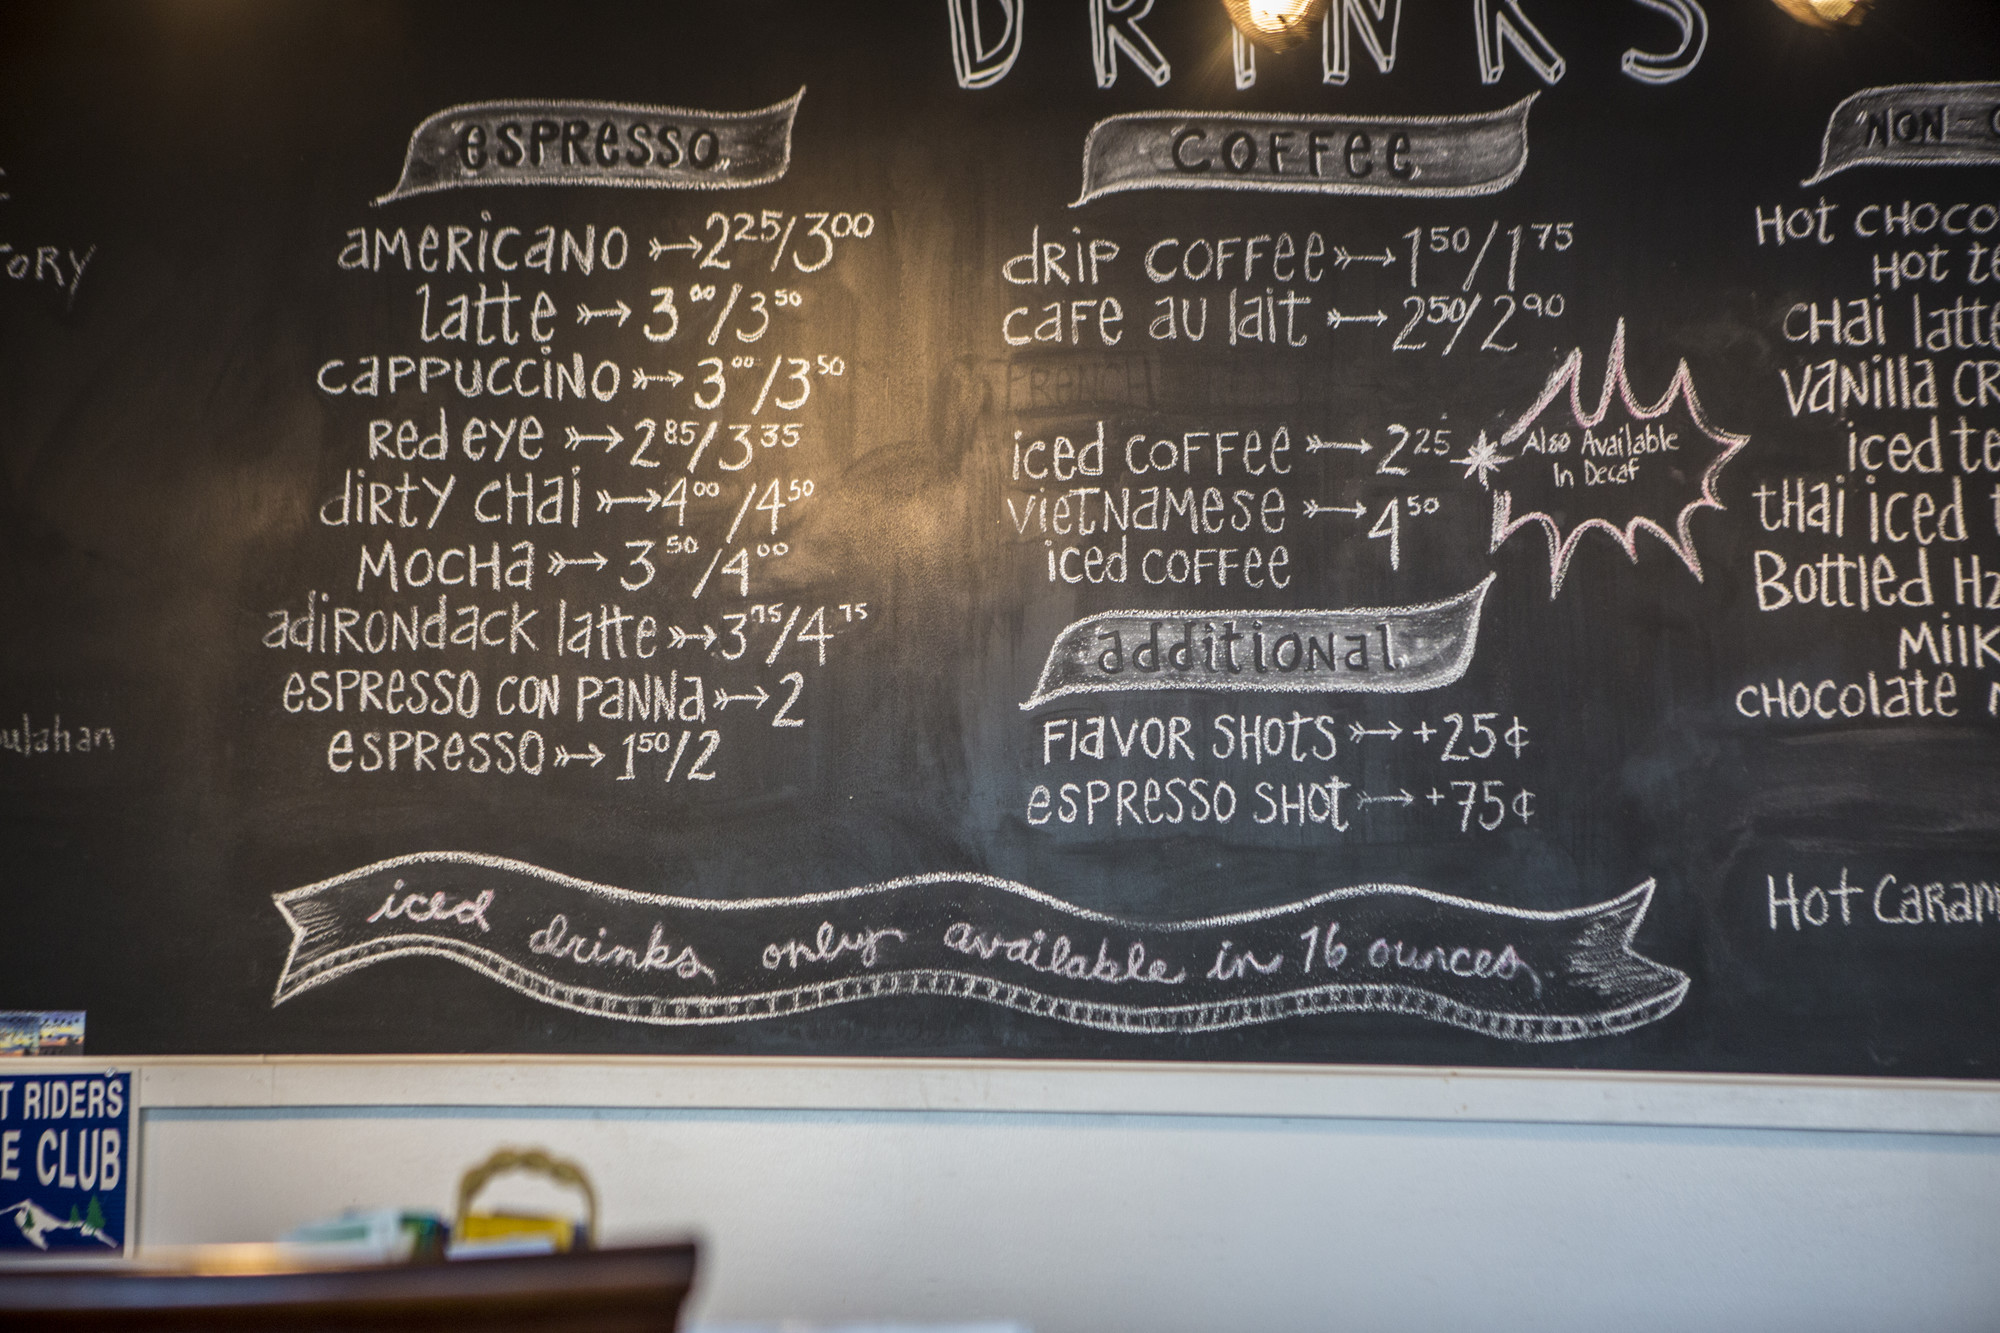 DRINKS
ESPRESSO
AMERICANO 2 25/3 00
latte 3 00/3 50
CAPPUCCINO 3 00/3 50
RED EYE 2 85/3 35
DIRTY CHAI 4 00/4 50
MOCHA 3 50/4 00
ADIRONDACK latte 3 75/4 75
ESPRESSO CON PANNA 2
ESPRESSO 1 50/2
COFFEE
DRIP COFFEE 1 50/1 75
CAFE AU lait 2 50/2 90
FRENCH
iced COFFEE 2 25
VIETNAMESE 4 50
iced COFFEE
Also Available
In Decaf
additional
FLAVOR SHOTS +25¢
ESPRESSO SHOT +75¢
NON-
HOT CHOCO
HOT te
CHAI latte
VANILLA CR
iced te
THAI iced t
Bottled H2
MILK
CHOCOLATE
HOT CARAM
iced drinks only available in 16 ounces
ORY
ulahan
T RIDERS
E CLUB